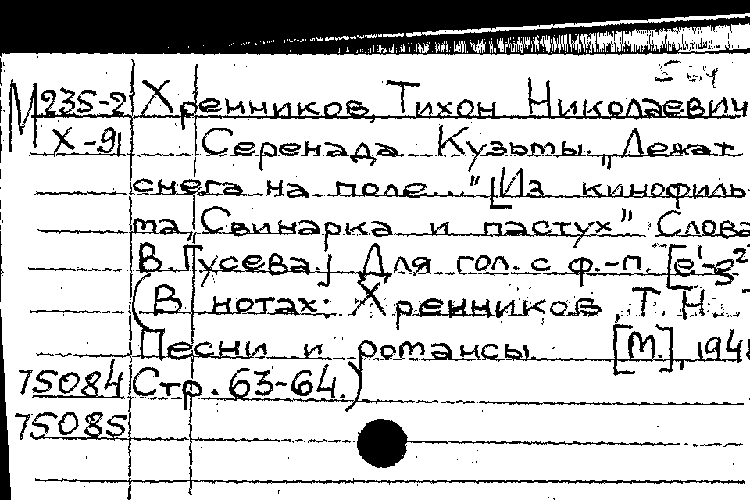 564
М 235-2 Хренников, Тихон Николаевич
Х-91 Серенада Кузьмы. „Лежат
снега на поле..." [Из кинофиль-
ма „Свинарка и пастух" Слова
В. Гусева.] Для гол. с ф.-п. [e¹-g²
(В нотах: Хренников, Т. Н.
Песни и романсы. [М.], 194
75084 Стр. 63-64.)
75085